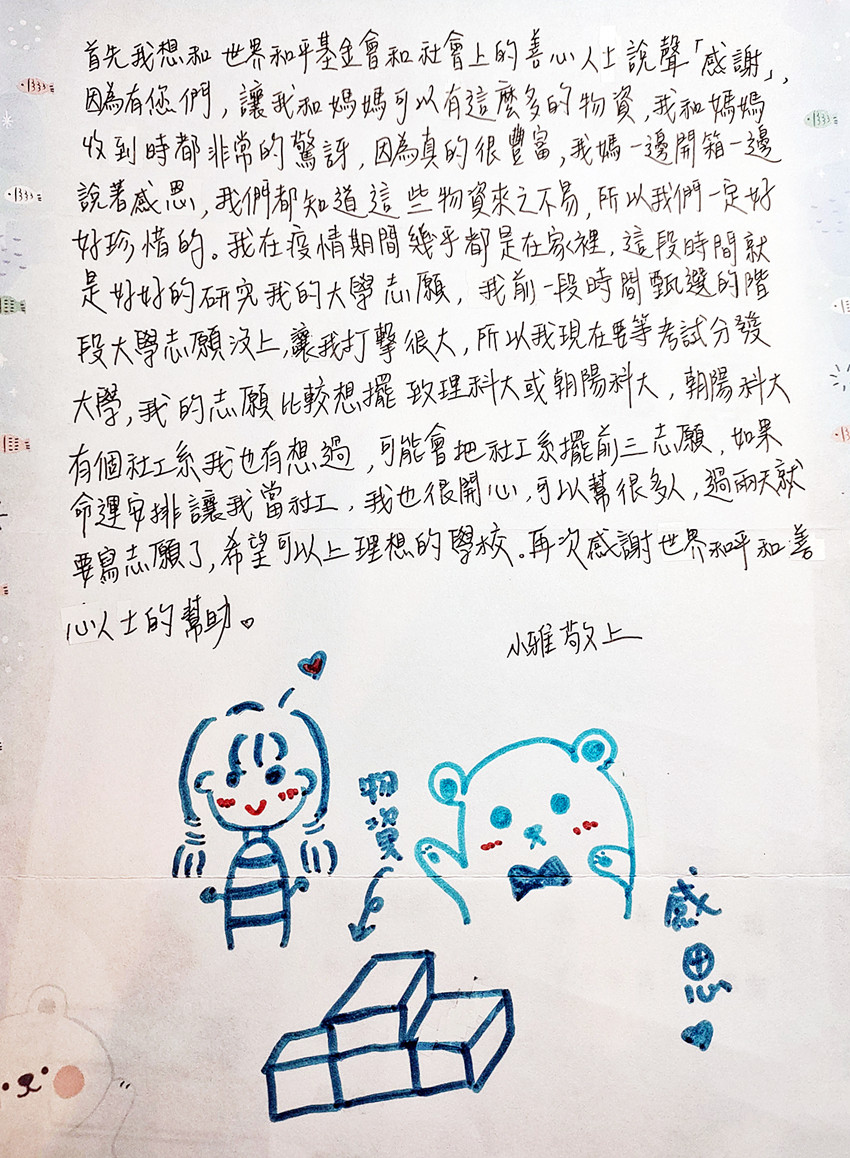 首先我想和 世界和平基金會和社會上的善心人士說聲「感謝」，
因為有您們，讓我和媽媽可以有這麼多的物資，我和媽媽
收到時都非常的驚訝，因為真的很豐富，我媽一邊開箱一邊
說著感恩，我們都知道這些物資來之不易，所以我們一定好
好珍惜的。我在疫情期間幾乎都是在家裡，這段時間就
是好好的研究我的大學志願，我前一段時間甄選的階
段大學志願沒上，讓我打擊很大，所以我現在要等考試分發
大學，我的志願比較想擺 致理科大或朝陽科大，朝陽科大
有個社工系我也有想過，可能會把社工系擺前三志願，如果
命運安排讓我當社工，我也很開心，可以幫很多人，過兩天就
要寫志願了，希望可以上理想的學校。再次感謝世界和平和善
心人士的幫助。
小雅敬上
物資
感恩